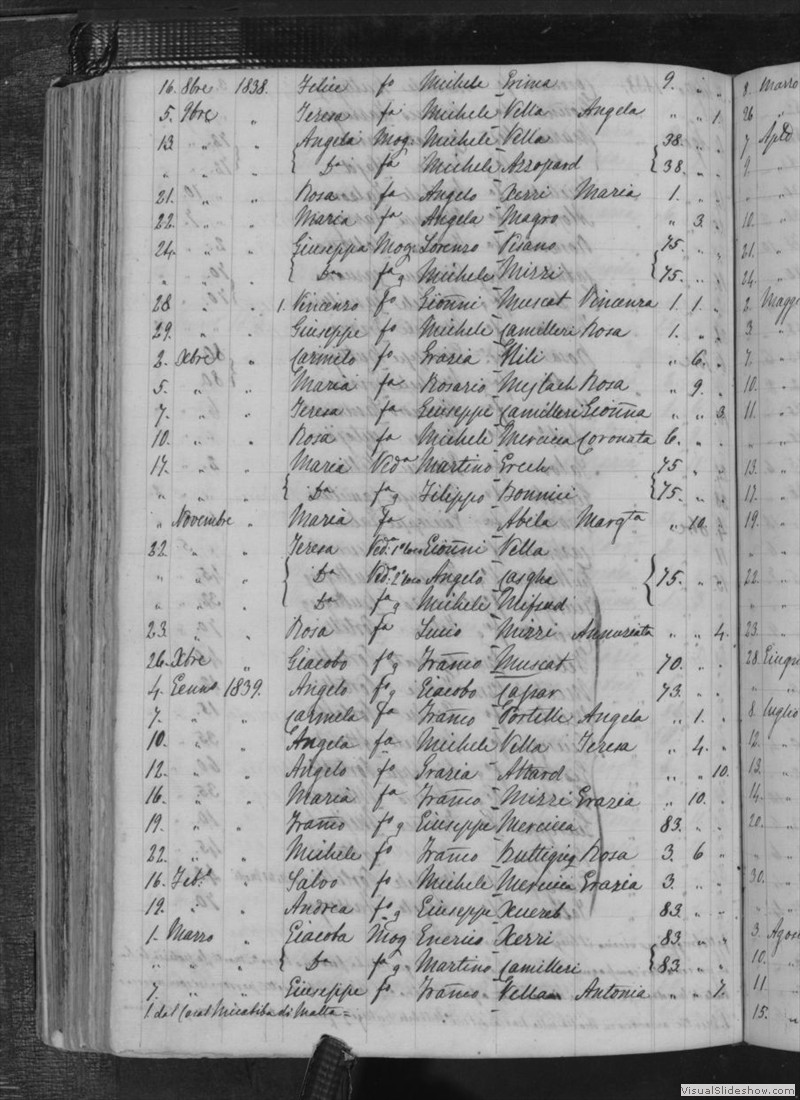 16. 8bre 1838. Felice fo Michele Grima 9. " "
5. 9bre " Teresa fa Michele Vella Angela " " 1.
13. " " Angela Mog. Michele Vella 38. " "
" " " Da fa Michele Azzopard 38. " "
21. " " Rosa fa Angelo Xerri Maria 1. " "
22. " " Maria fa Angela Magro " 3. "
24. " " Giuseppa Mog. Lorenzo Pisano 75. " "
" " " Da fa g Michele Mizzi 75. " "
28 " " 1. Vincenzo fo Gionni Muscat Vincenza 1. 1. "
29. " " Giuseppe fo Michele Camilleri Rosa 1. " "
2. Xbre " Carmelo fo Grazia " 6. "
5. " " Maria fa Rosario Rosa " 9. "
7. " " Teresa fa Giuseppe Camilleri Gionna " " 3.
10. " " Rosa fa Michele Mercieca Coronata 6. " "
17. " " Maria Veda Martino Grech 75 " "
" " " Da fa g Filippo Bonnici 75. " "
" Novembre " Maria fa Abela Margta " 10. "
22. " " Teresa Ved. 1o loco Gionni Vella
" " " Da Ved. 2o loco Angelo Casgha 75. " "
" " " Da fa g Michele Mifsud
23. " " Rosa fa Lucio Mizzi Annunziata " " 4.
26. Xbre " Giacobo fo g Franco Muscat 70. " "
4. Genn 1839. Angelo fo g Giacobo Capar 73. " "
7. " " Carmela fa Franco Portelli Angela " 1. "
10. " " Angela fa Michele Vella Teresa " 4. "
12. " " Angelo fo Grazia Attard " " 10.
16. " " Maria fa Franco Mizzi Grazia " 10. "
19. " " Franco fo g Giuseppe Mercieca 83. " "
22. " " Michele fo Franco Buttigieg Rosa 3. 6 "
16. Feb. " Salvo fo Michele Mercieca Grazia 3. " "
19. " " Andrea fo g Giuseppe Xuereb 83. " "
1. Marzo " Giacoba Mog Xerri 83. " "
" " " Da fa g Martino Camilleri 83. " "
7. " " Giuseppe fo Franco Vella Antonia " " 7.
1. dal Casal Micabiba di Malta =
8. Marzo
26 "
7 Aple
9. "
" "
10. "
21. "
24. "
2. Maggi
3. "
7. "
10. "
11. "
" "
13. "
17. "
19. "
" "
22. "
" "
23. "
28. Giugn
" "
8. Luglio
12. "
13. "
14. "
20. "
" "
30. "
" "
3. Agos
10. "
11. "
15. "
VisualSlideshow.com